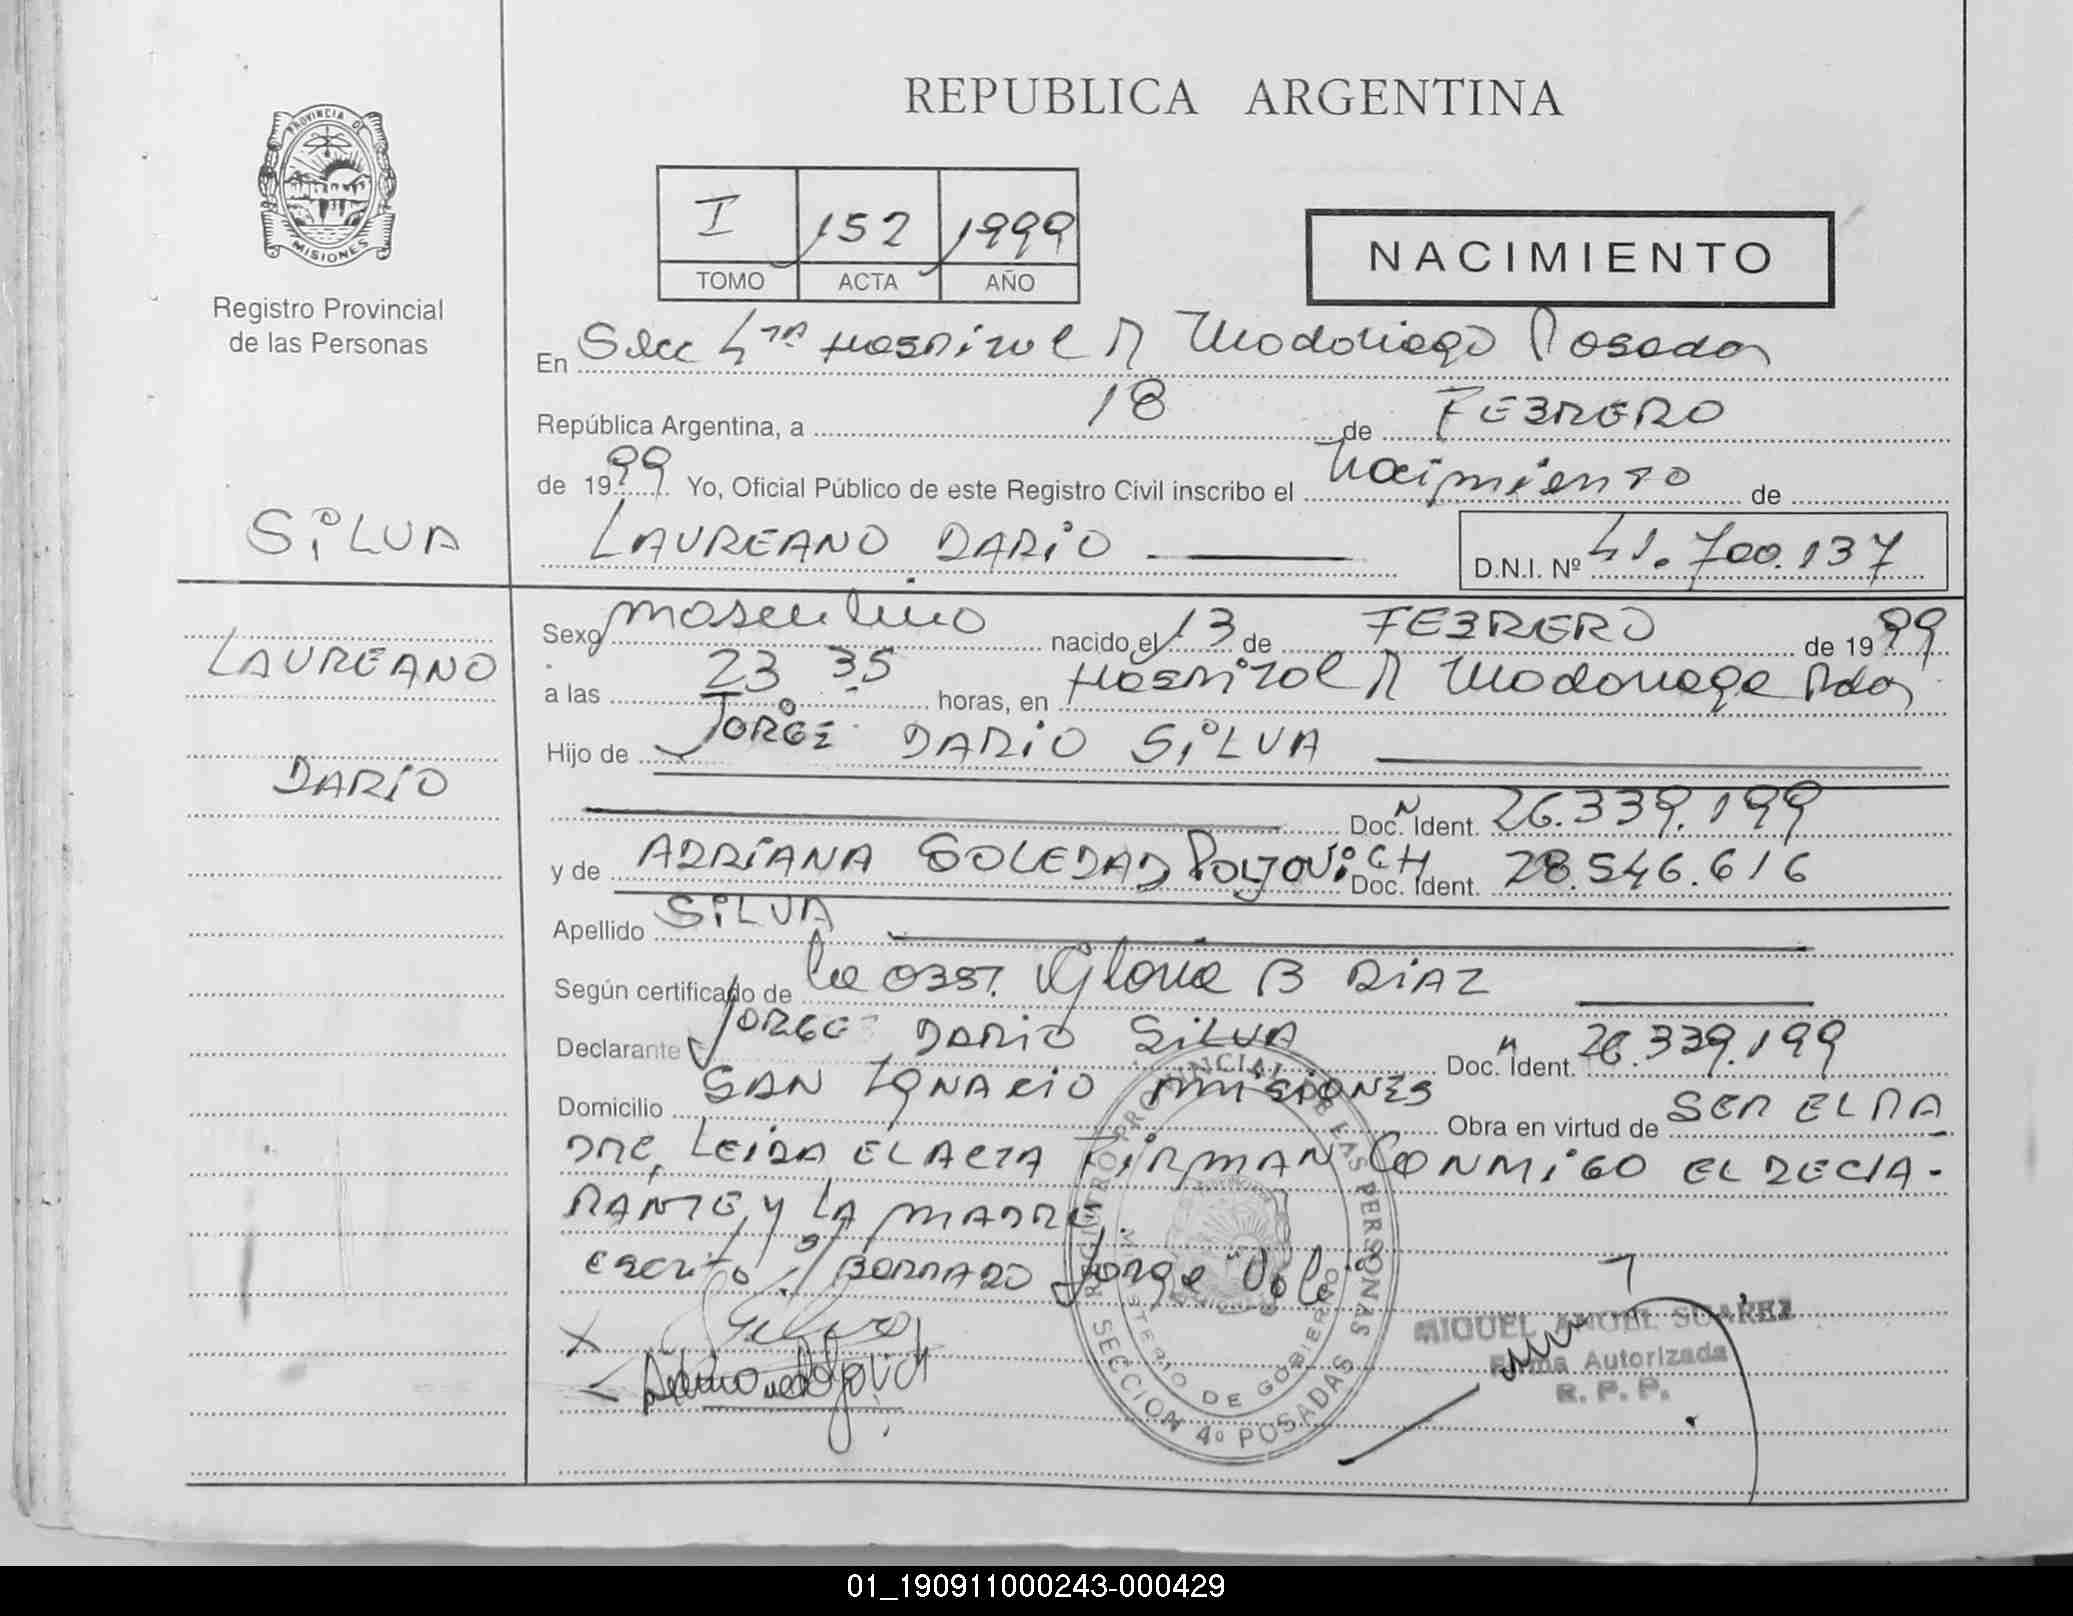 REPUBLICA ARGENTINA
PROVINCIA DE
MISIONES
Registro Provincial
de las Personas
I 152 1999
TOMO ACTA AÑO
NACIMIENTO
En Secc 4ta Hospital R Madariaga Posadas
República Argentina, a 18 de FEBRERO
de 1999 Yo, Oficial Público de este Registro Civil inscribo el Nacimiento de
SILVA
LAUREANO DARIO
D.N.I. Nº 41.700.137
LAUREANO
DARIO
Sexo masculino nacido el 13 de FEBRERO de 1999
a las 23 35 horas, en Hospital R Madariaga Pdas
Hijo de JORGE DARIO SILVA
Doc. Ident. 26.339.199
y de ADRIANA SOLEDAD POLJOVICH Doc. Ident. 28.546.616
Apellido SILVA
Según certificado de la OBST. Gloria B DIAZ
Declarante JORGE DARIO SILVA Doc. Ident. 26.339.199
Domicilio SAN IGNACIO MISIONES Obra en virtud de SER EL PA
DRE, LEIDA EL ACTA FIRMAN CONMIGO EL DECLA-
RANTE, Y LA MADRE.
escrito / BORRADO Jorge Vale
REGISTRO PROVINCIAL DE LAS PERSONAS
MINISTERIO DE GOBIERNO
SECCION 4º POSADAS
MIGUEL ANGEL SUAREZ
Firma Autorizada
R. P. P.
01_190911000243-000429